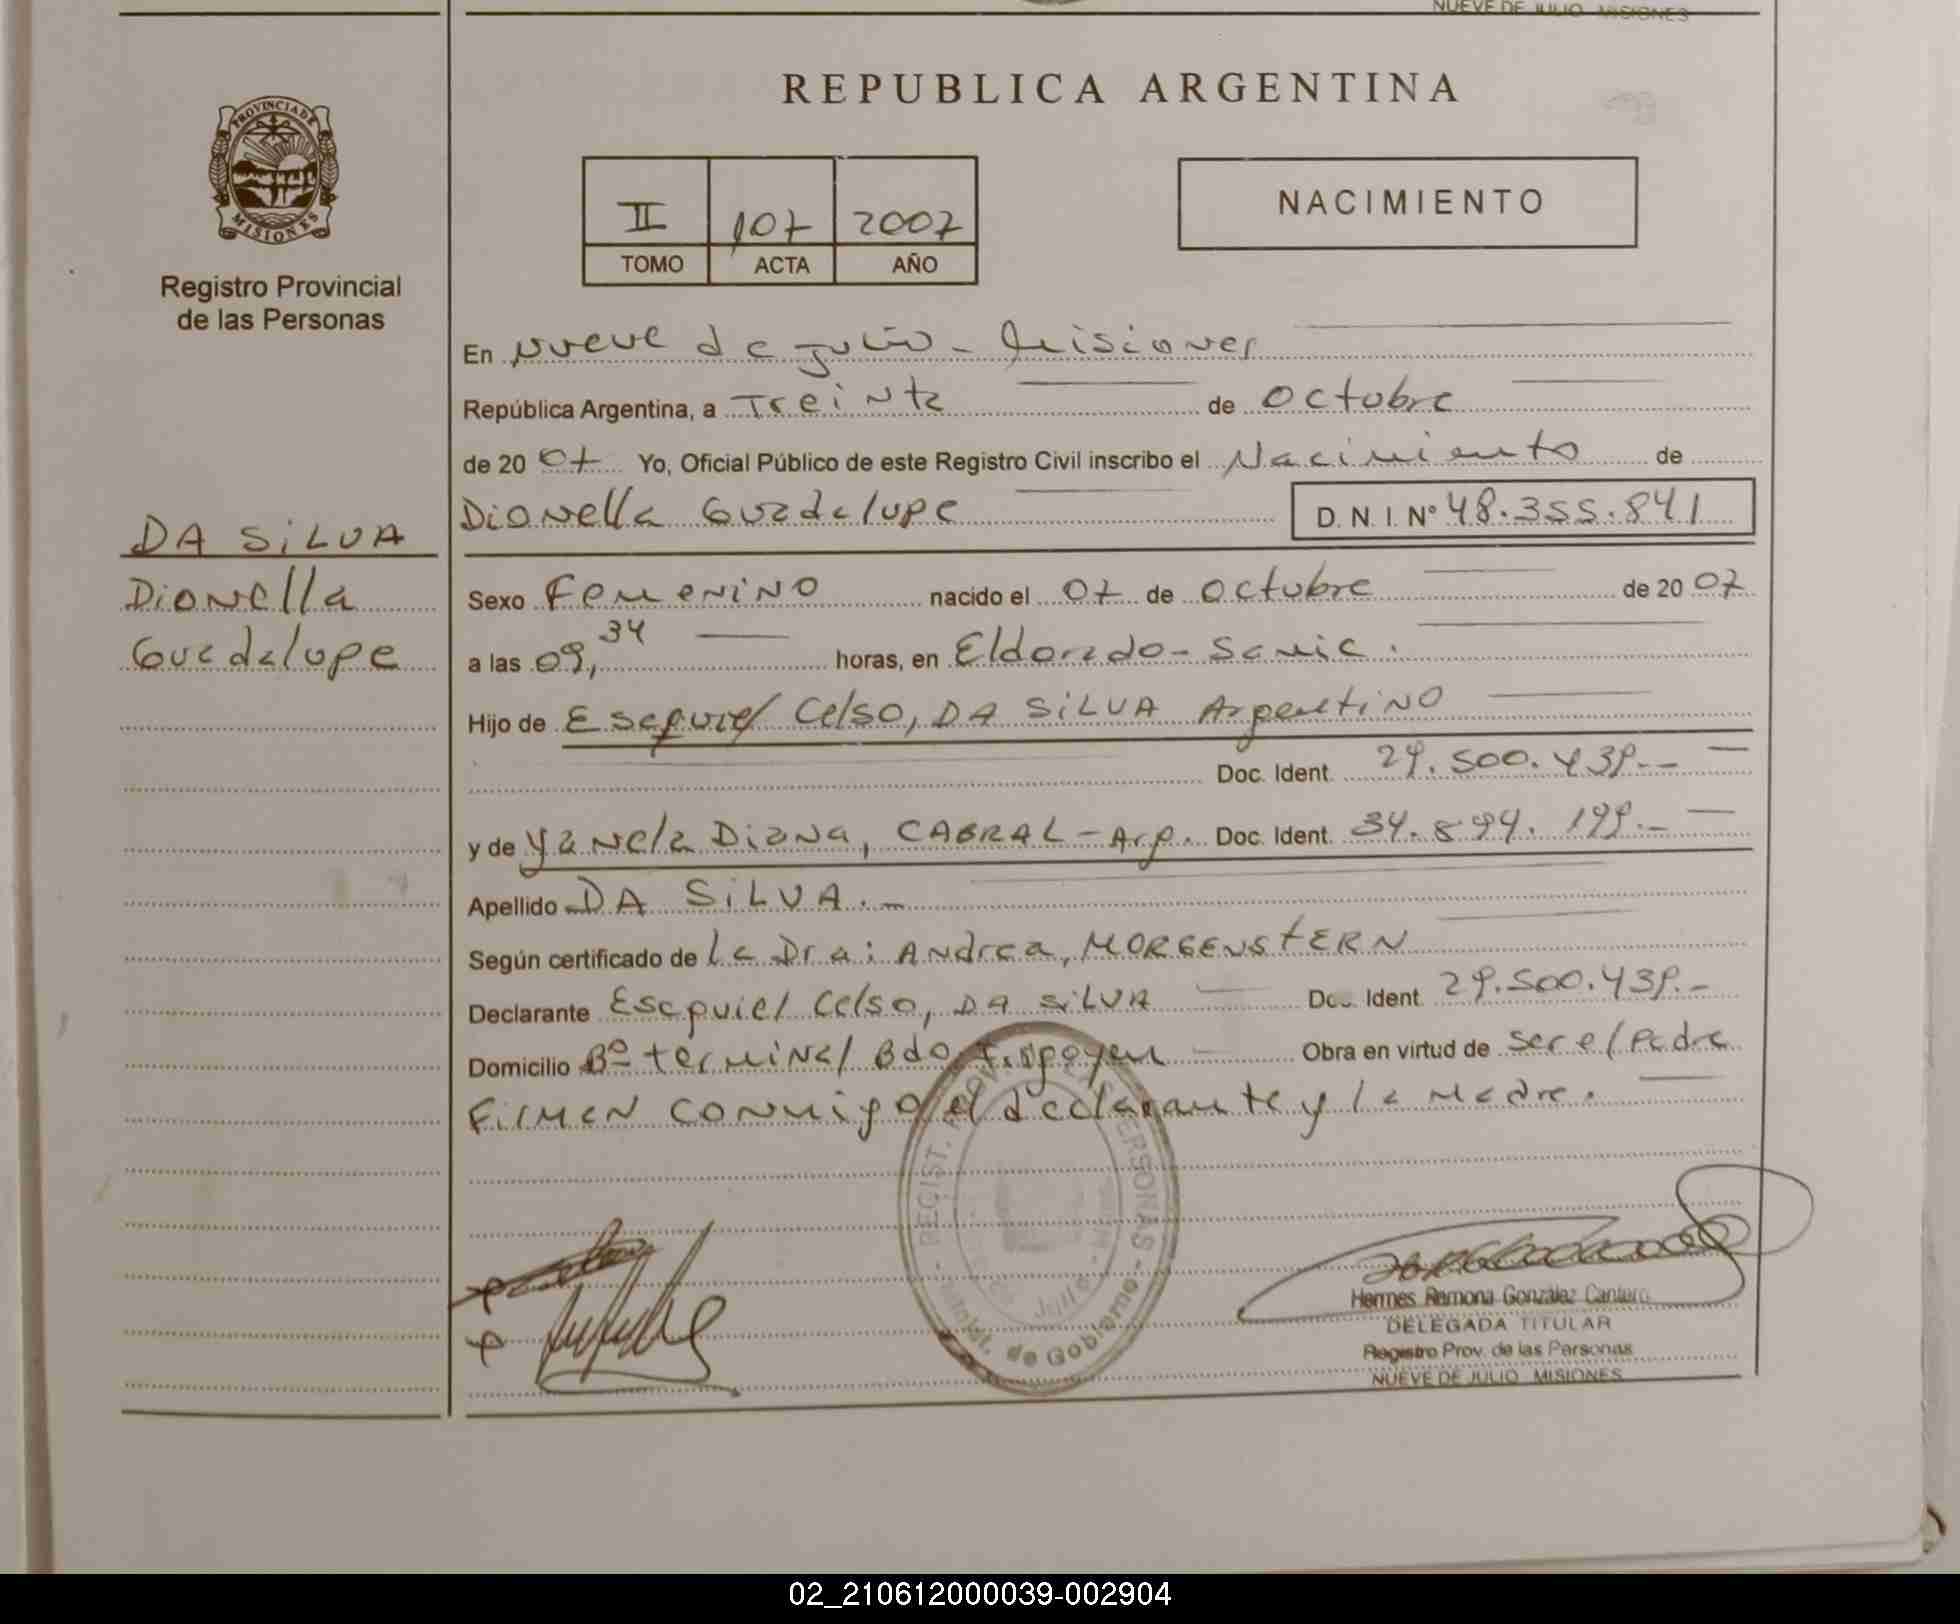 NUEVE DE JULIO MISIONES
REPUBLICA ARGENTINA
PROVINCIA DE MISIONES
II 107 2007
TOMO ACTA AÑO
NACIMIENTO
Registro Provincial
de las Personas
En Nueve de Julio - Misiones
República Argentina, a Treinta de Octubre
de 20 07 Yo, Oficial Público de este Registro Civil inscribo el Nacimiento de
Dionella Guadalupe D.N.I. Nº 48.355.841
DA SiLVA
Dionella
Guadalupe
Sexo Femenino nacido el 07 de Octubre de 20 07
a las 09,34 horas, en Eldorado - Samic.
Hijo de Esequiel Celso, DA SiLVA Argentino
Doc. Ident. 29.500.439.-
y de Yanela Diana, CABRAL - Arg. Doc. Ident. 34.894.199.-
Apellido DA SiLVA.-
Según certificado de La Dra: Andrea, MORGENSTERN
Declarante Esequiel Celso, DA SiLVA Doc. Ident. 29.500.439.-
Domicilio Bº Terminal Bdo. Obra en virtud de ser el Padre
Firman conmigo el declarante y la Madre.
REGIST. PERSONAS - Minist. de Gobierno -
Julio
Hermes Ramona González Cantero
DELEGADA TITULAR
Registro Prov. de las Personas
NUEVE DE JULIO MISIONES
02_210612000039-002904